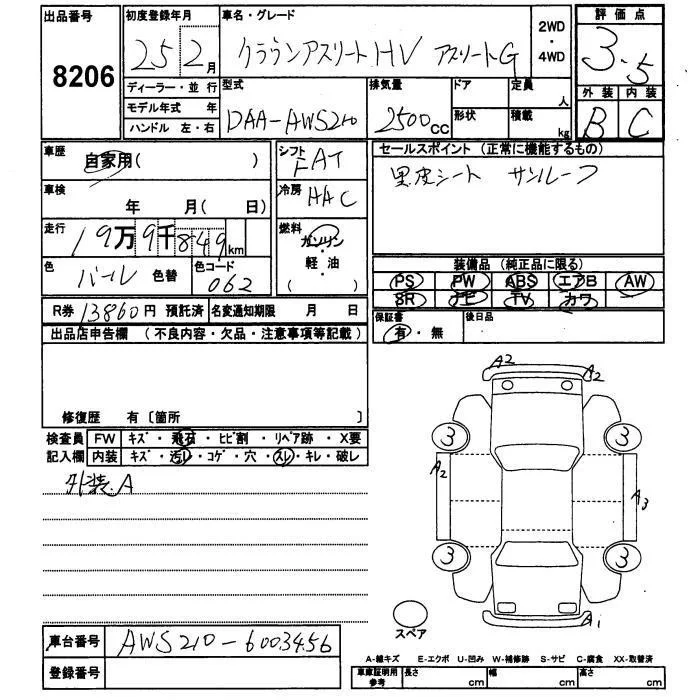 出品番号 初度登録年月 車名・グレード 2WD・4WD 評価点
8206 25 2月 クラウンアスリートHV アスリートG 3.5
ディーラー・並行 型式 排気量 ドア 定員 人 外装 内装
モデル年式 年 DAA-AWS210 2500cc 形状 積載 kg B C
ハンドル 左・右
車歴 自家用( ) シフト FAT セールスポイント (正常に機能するもの)
車検 年 月( 日) 冷房 HAC 黒皮シート サンルーフ
走行 19万9千849km 燃料 ガソリン・軽油 ( )
色 パール 色替 色コード 062 装備品 (純正品に限る)
PS PW ABS エアB AW
SR ナビ TV カワ
R券 13860円 預託済 名変通知期限 月 日 保証書 有・無 後日品
出品店申告欄 (不良内容・欠品・注意事項等記載)
修復歴 有 〔箇所 〕
検査員 FW キズ・飛石・ヒビ割・リペア跡・X要
記入欄 内装 キズ・汚レ・コゲ・穴・スレ・キレ・破レ
外装A
A2 A2
3 3
A2 A3
3 3
A1
スペア
車台番号 AWS210-6003456
登録番号
A-線キズ E-エクボ U-凹み W-補修跡 S-サビ C-腐食 XX-取替済
車庫証明用参考 長さ cm 幅 cm 高さ cm